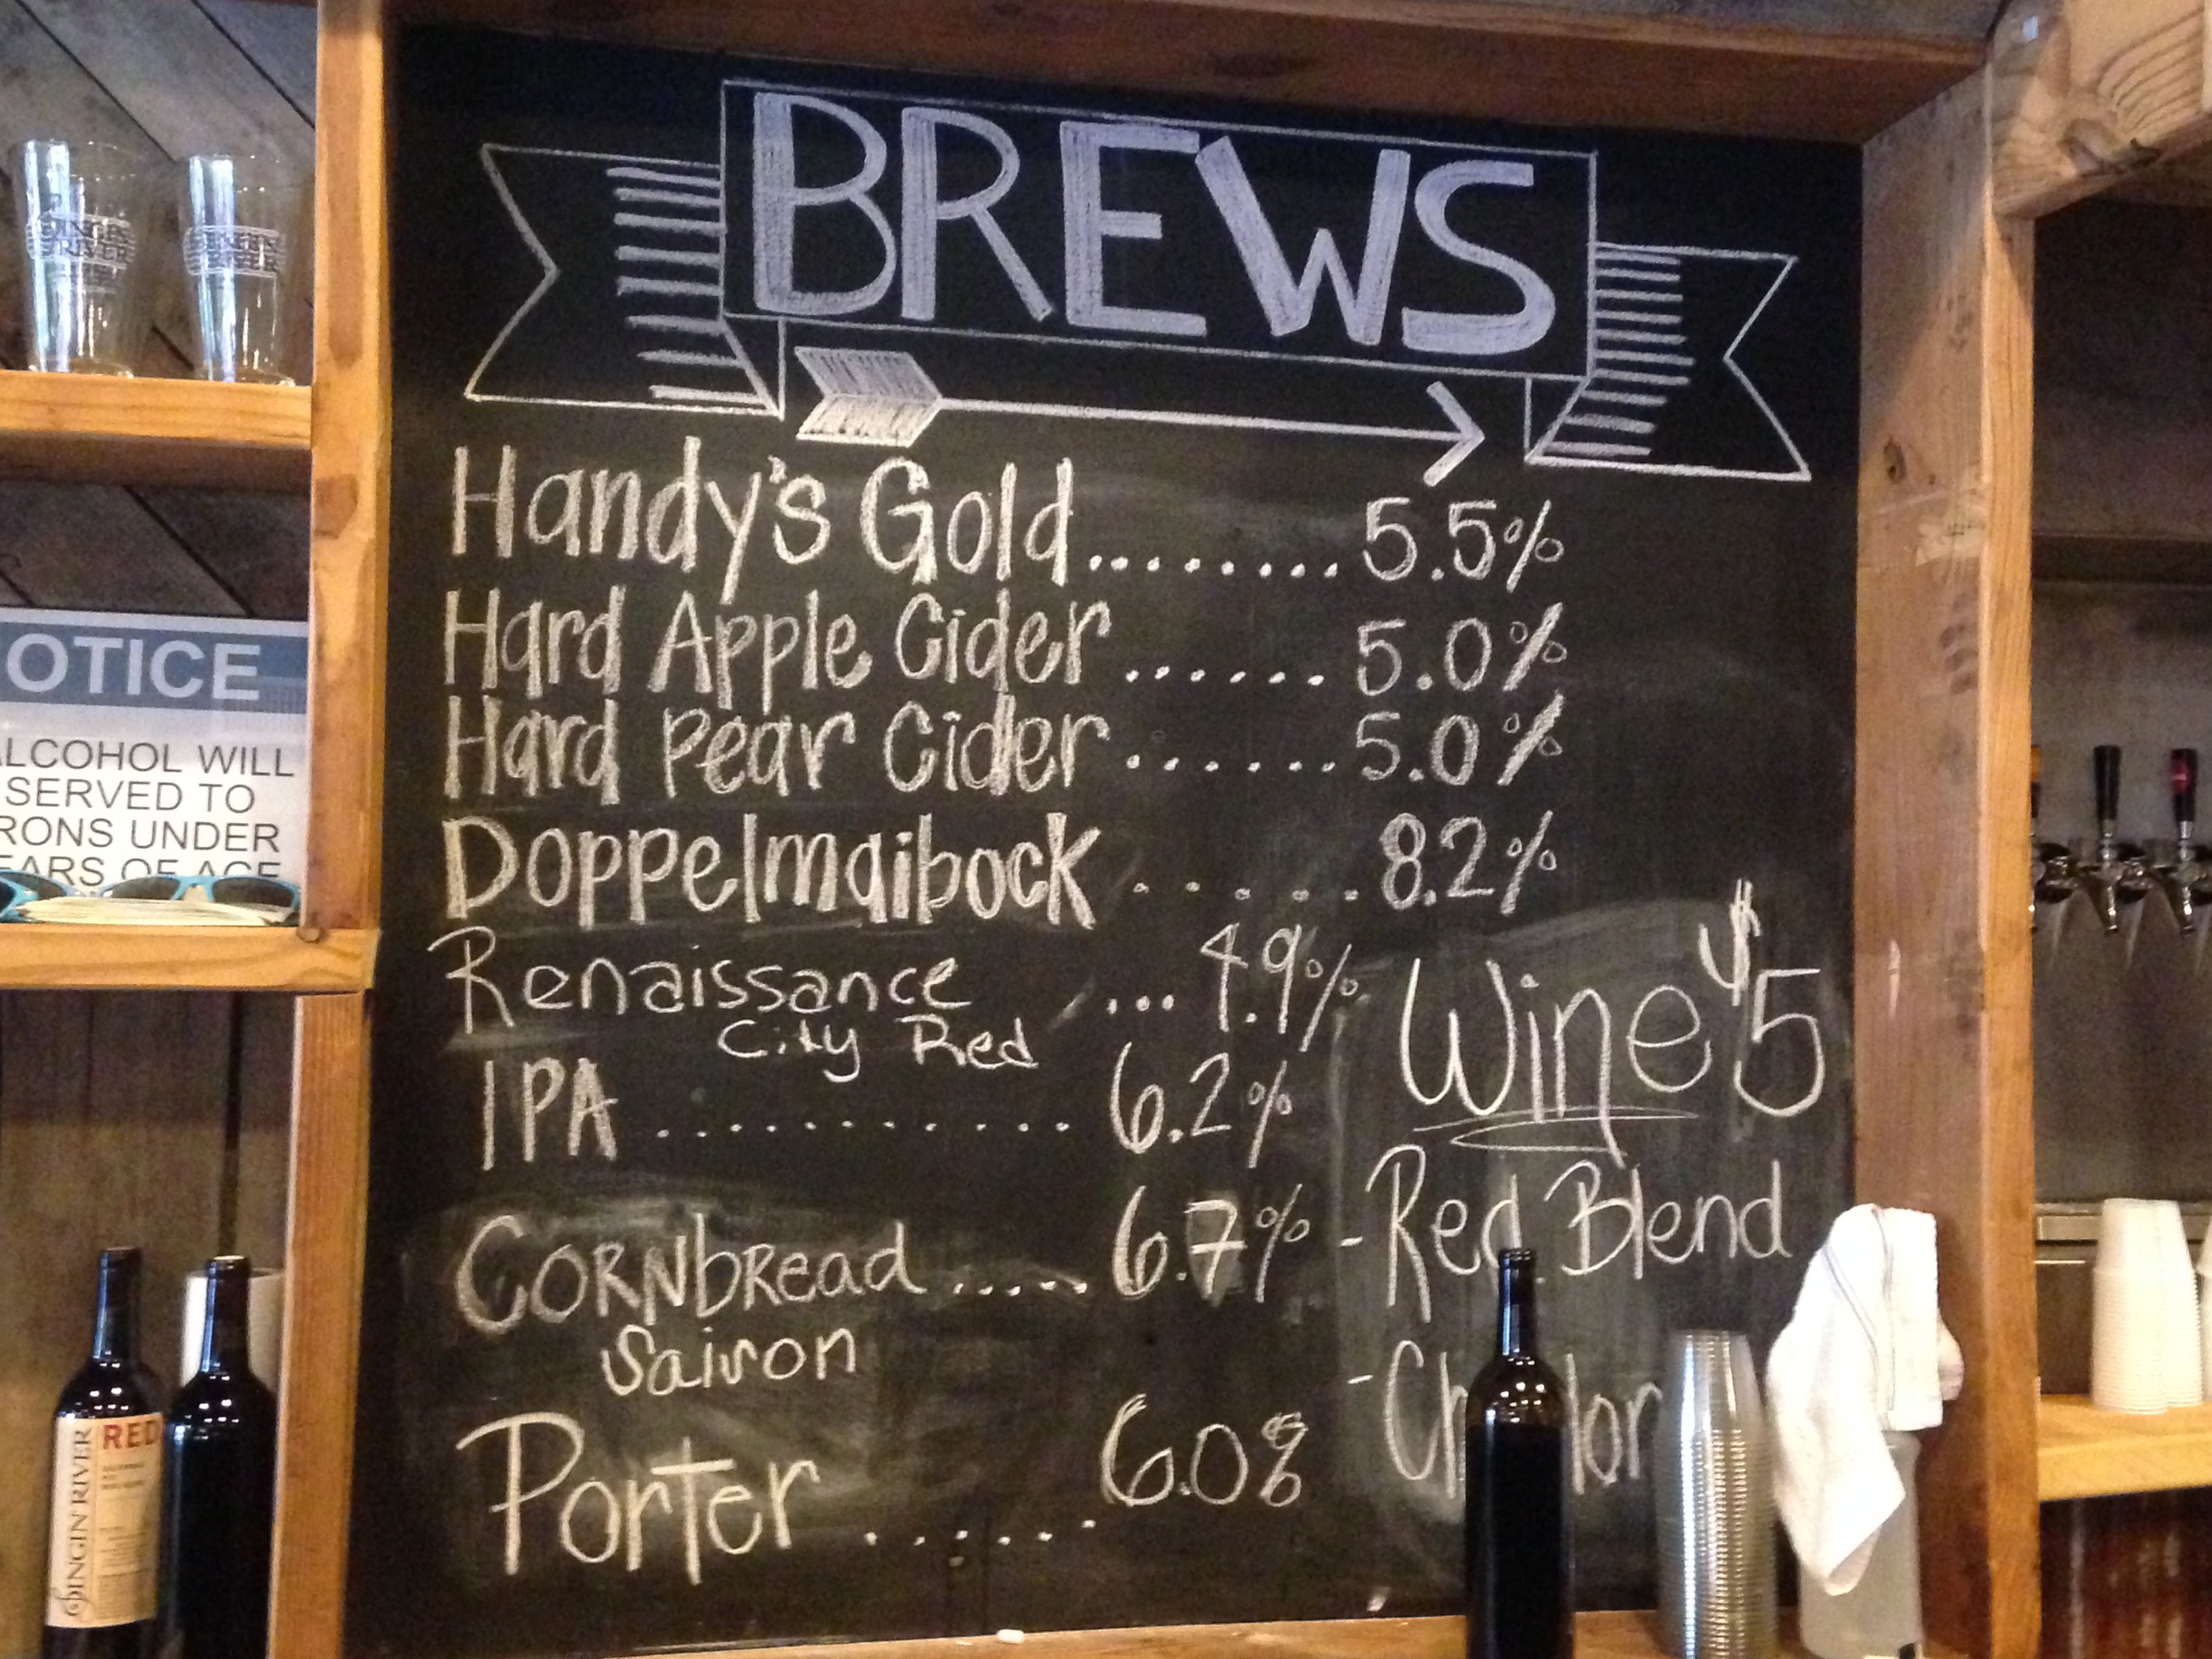 BREWS
Handy's Gold........5.5%
Hard Apple Cider......5.0%
Hard Pear Cider......5.0%
Doppelmaibock.....8.2%
Renaissance...4.9%
City Red
IPA...........6.2%
Cornbread.....6.7%
Saison
Porter......6.0%
Wine $5
-Red Blend
OTICE
ALCOHOL WILL
SERVED TO
RONS UNDER
EARS OF AGE
SINGIN RIVER
RED